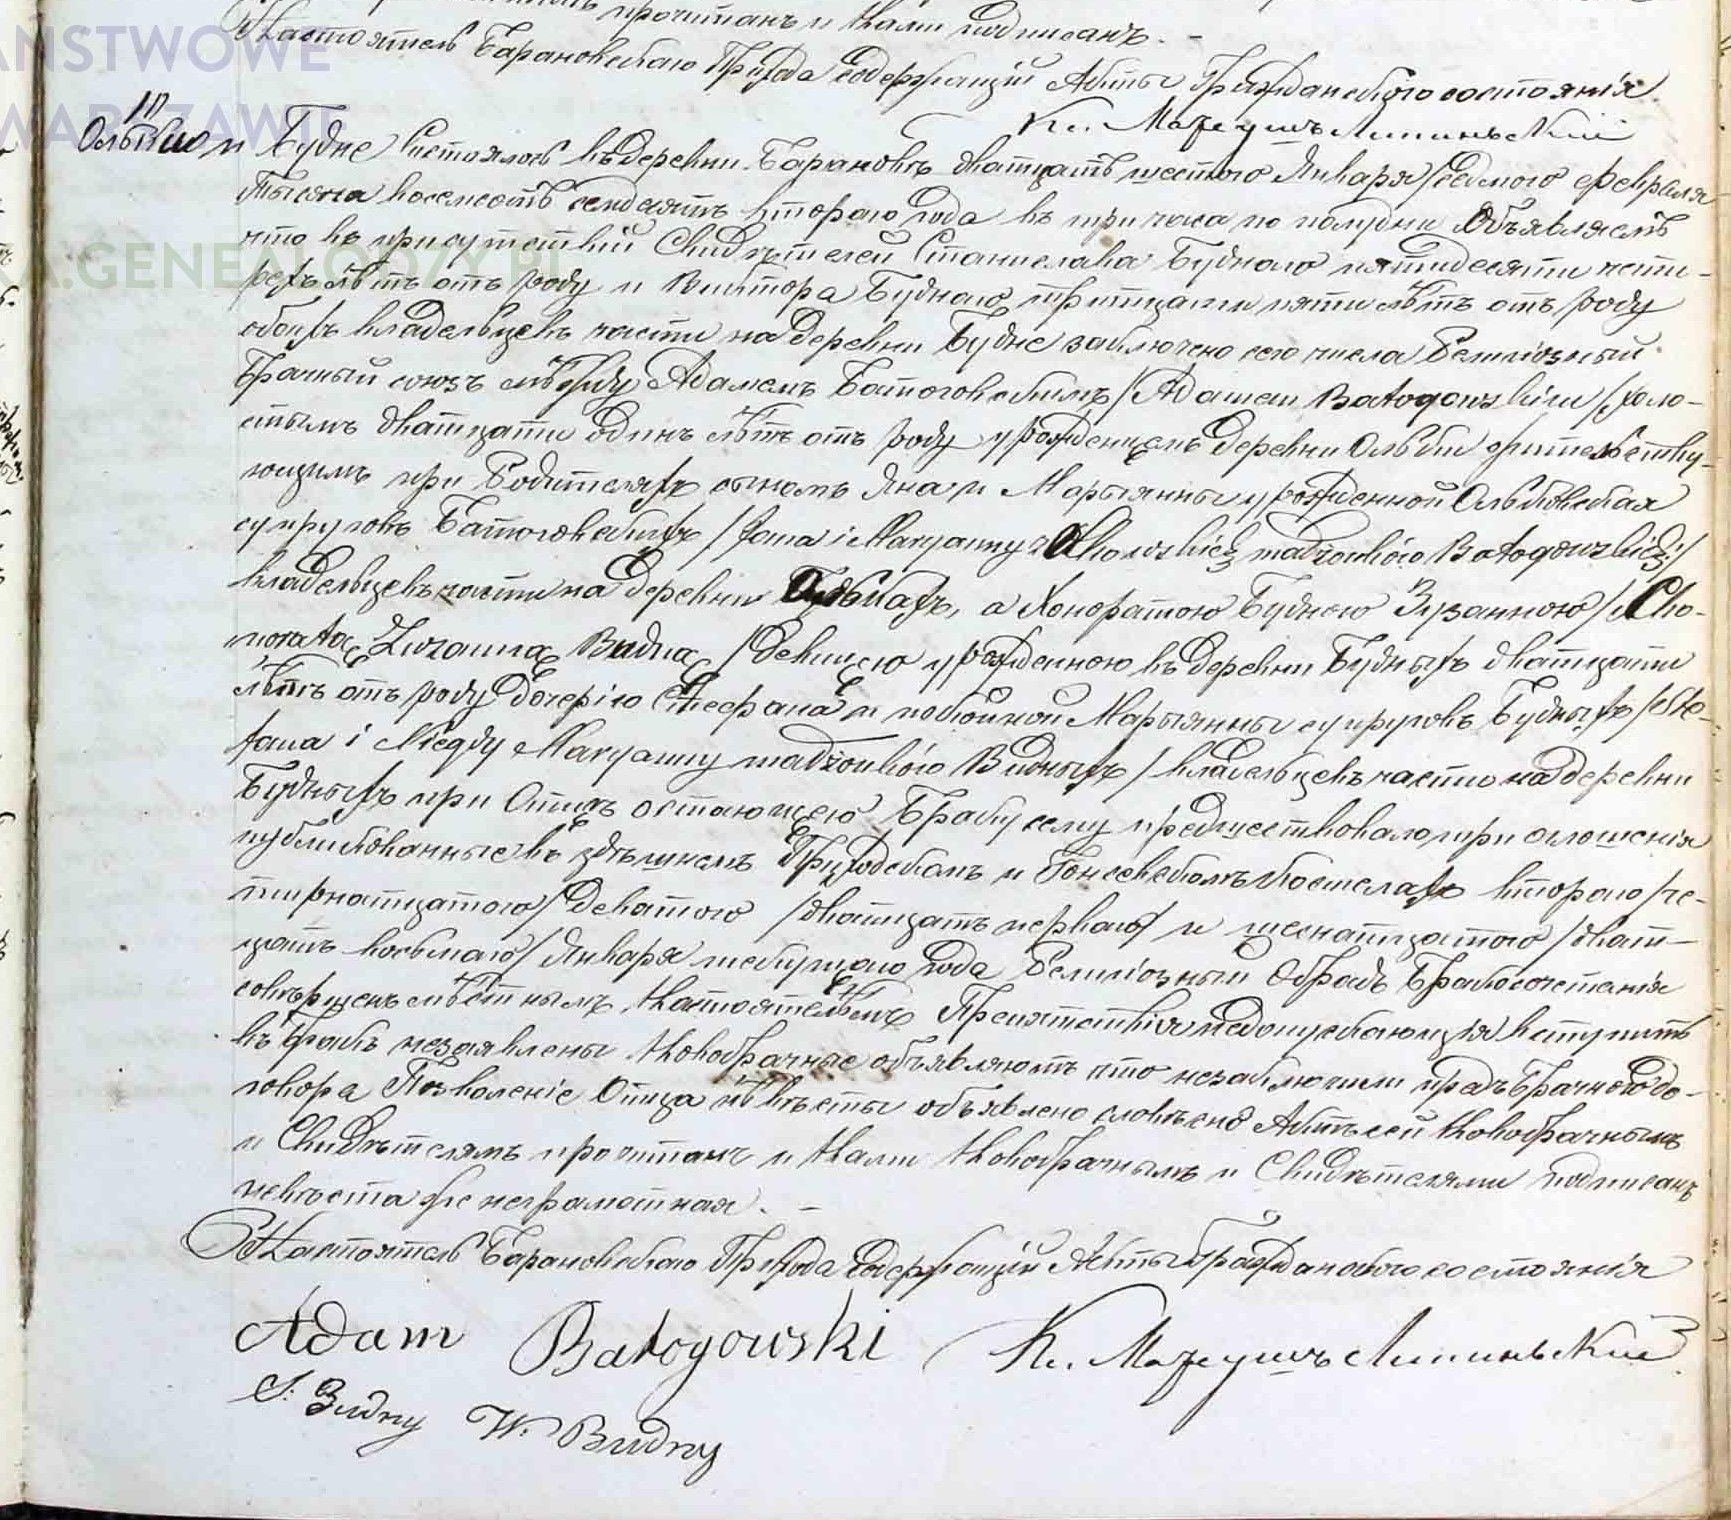 прочитанъ и Нами подписанъ. -
Настоятель Барановскаго Прихода содержащій Акты Гражданскаго состоянія.
Кс. Матеушъ Липинскій
PAŃSTWOWE
WARSZAWIE
GENEALODZY.PL
Будне Состоялось въ деревни Барановѣ дватцать шестого Января/седмого февраля
тысяча восемсотъ семдесятъ второго года въ три часа по полудни Объявляемъ
что въ присутствіи Свидѣтелей Станислава Буднаго пятидесяти четы-
рехъ лѣтъ отъ роду и Виктора Буднаго, тритцати пяти лѣтъ отъ роду
обоихъ владельцевъ части на деревни Будне заключено сего числа Религіозный
Брачный союзъ между Адамемъ Батоговскимъ /Adamem Batogowskim/ холо-
стымъ дватцати одинъ лѣтъ отъ роду урожденцемъ деревни жительству-
ющимъ при Родителяхъ сыномъ Яна и Марыянны урожденной
супруговъ Батоговскихъ /Jana i Maryanny małżonków Batogowskich/
владельцевъ части на деревни а Хоноратою Буднею Зузанною /Cho-
noratą Zuzanną Budną/ девицею урожденною въ деревни Будныхъ дватцати
лѣтъ отъ роду дочерію Стефана и покойной Марыянны супруговъ Будныхъ /Ste-
fana i Niegdy Maryanny małżonków Budnych/ владельцевъ части на деревни
Будныхъ при Отцѣ остающею Браку сему предшествовало три оглошенія
публикованные въ здѣшнемъ Приходскомъ и Костелахъ второго /че-
тырнатцатого/ девятого /дватцать первого/ и шеснатцатого /дват-
цать восьмаго/ Января текущаго года Религіозный Обрядъ Бракосочетанія
совѣршенъ мѣстнымъ Настоятелемъ Препятствія недопускающія вступить
въ бракъ незаявлены Новобрачные объявляютъ что незаключили предъ Брачного до-
говора Позволеніе Отца невѣсты объявлено словѣсно Актъ сей Новобрачнымъ
и Свидѣтелямъ прочитанъ и Нами Новобрачнымъ и Свидѣтелями подписанъ
невѣста же неграмотная. -
Настоятель Барановскаго Прихода содержащій Акты Гражданскаго состоянія
Adam Batogowski Кс. Матеушъ Липинскій
S: Budny W. Budny